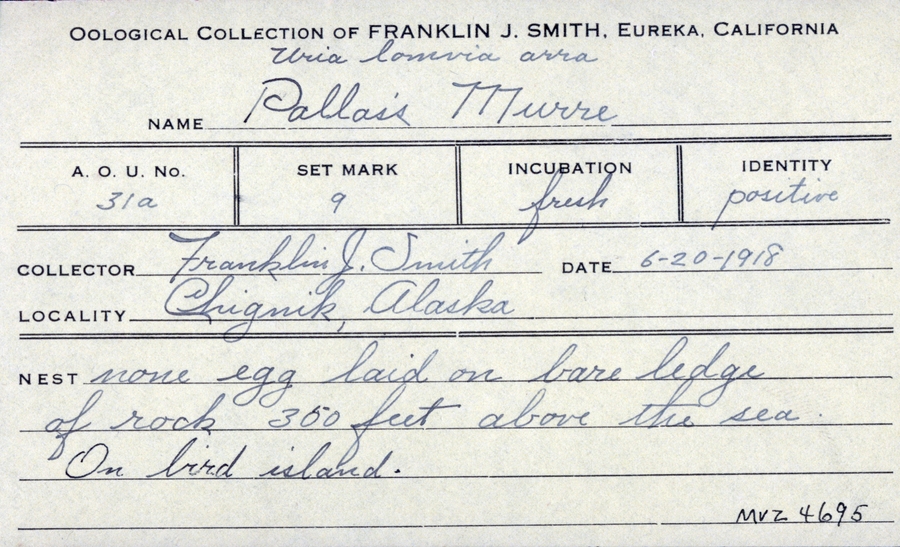 OOLOGICAL COLLECTION OF FRANKLIN J. SMITH, EUREKA, CALIFORNIA
Uria lomvia arra
NAME Pallas's Murre
A. O. U. NO. SET MARK INCUBATION IDENTITY
31a 9 fresh positive
COLLECTOR Franklin J. Smith DATE 6-20-1918
LOCALITY Chignik, Alaska
NEST none egg laid on bare ledge
of rock 350 feet above the sea.
On bird island.
MVZ 4695